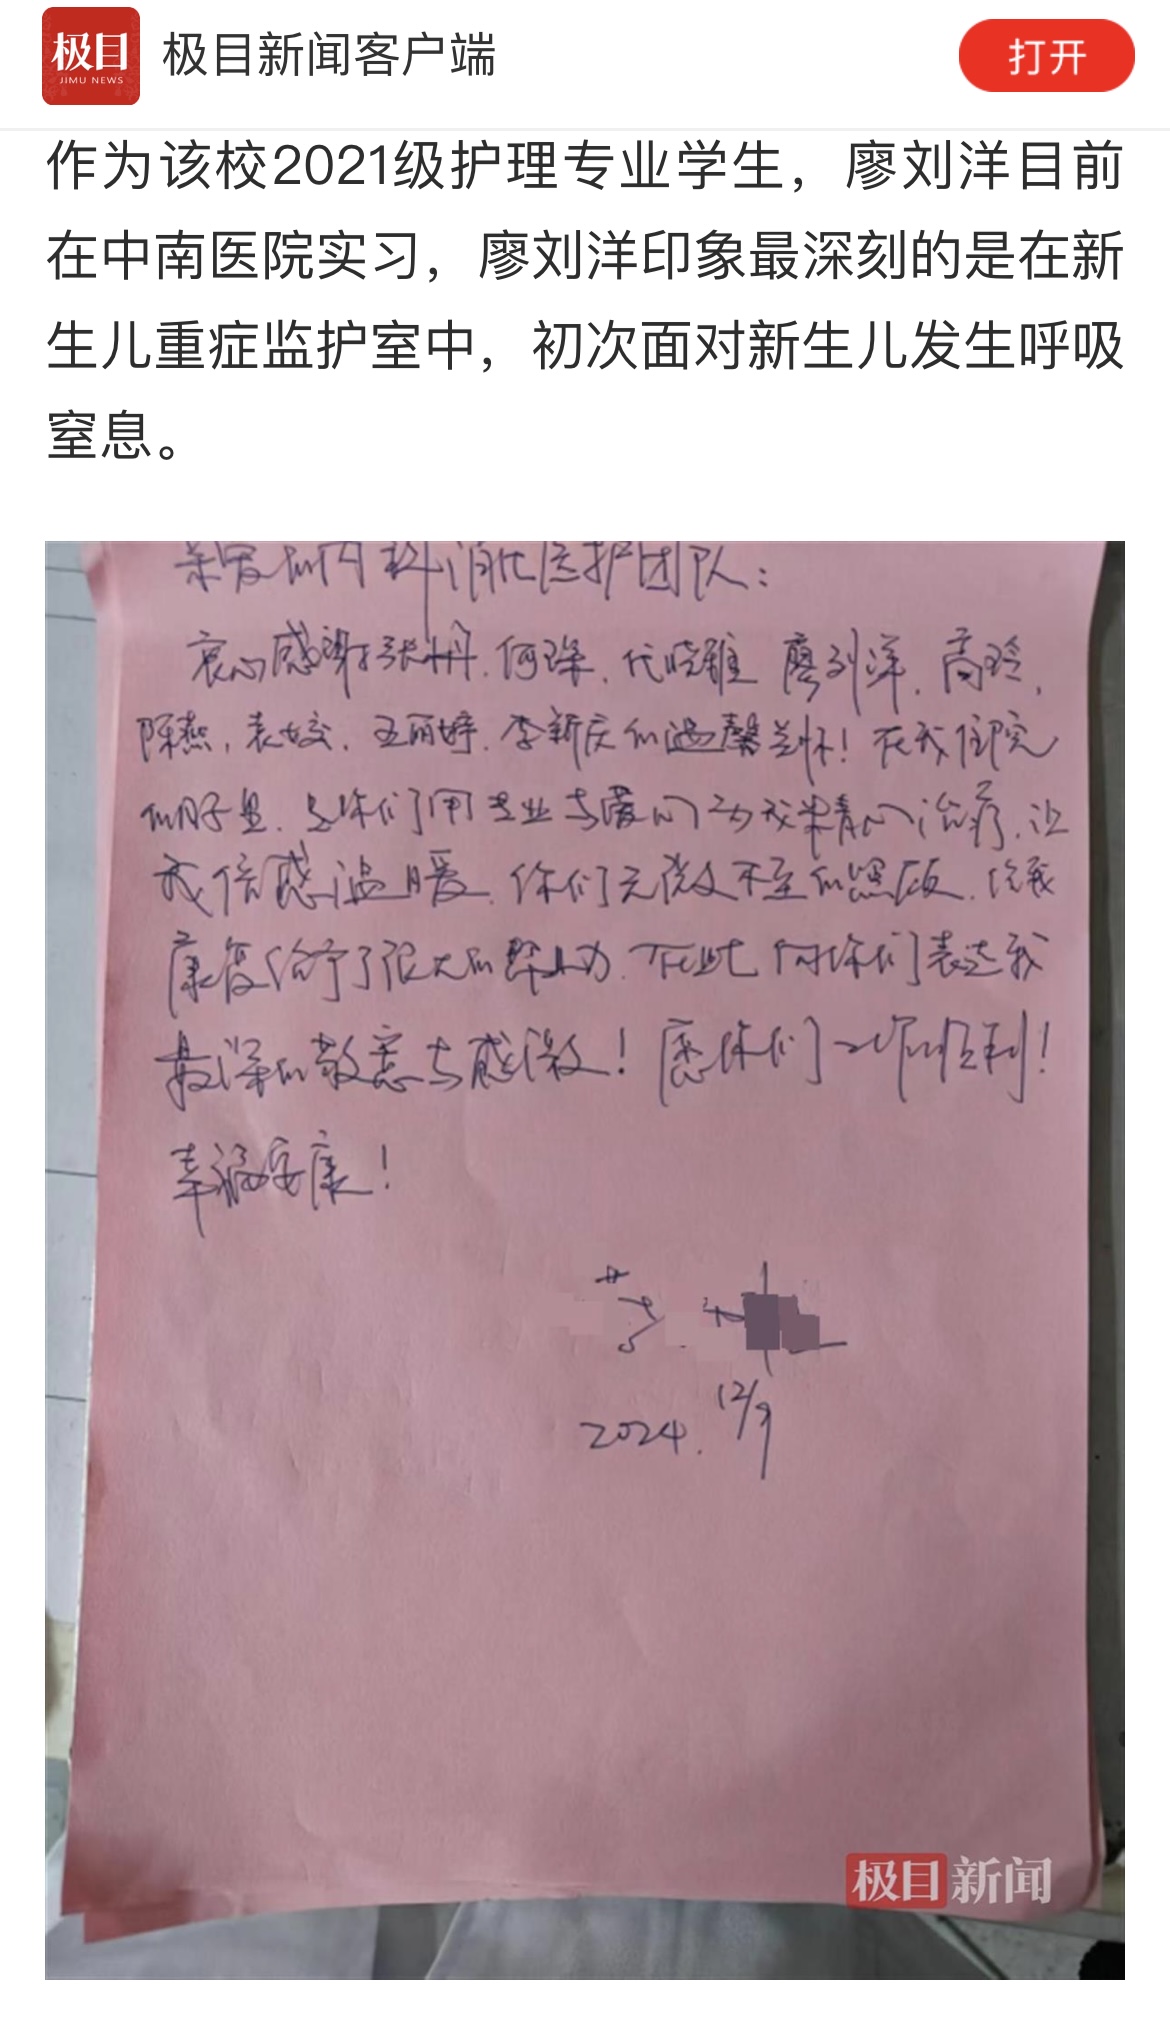 极目
JIMU NEWS
极目新闻客户端
打开
作为该校2021级护理专业学生，廖刘洋目前
在中南医院实习，廖刘洋印象最深刻的是在新
生儿重症监护室中，初次面对新生儿发生呼吸
窒息。
亲爱的内科消化医护团队：
衷心感谢张丹、何琛、代晓雅 廖刘洋、高玲、
陈燕、袁姣、王丽婷、李新庆的温馨关怀！在我住院
的日子里，是你们用专业与爱心为我精心治疗，让
我倍感温暖，你们无微不至的照顾，给我
康复给予了很大的帮助，在此向你们表达我
最深的敬意与感激！愿你们工作顺利！
幸福安康！
2024. 12/9
极目新闻